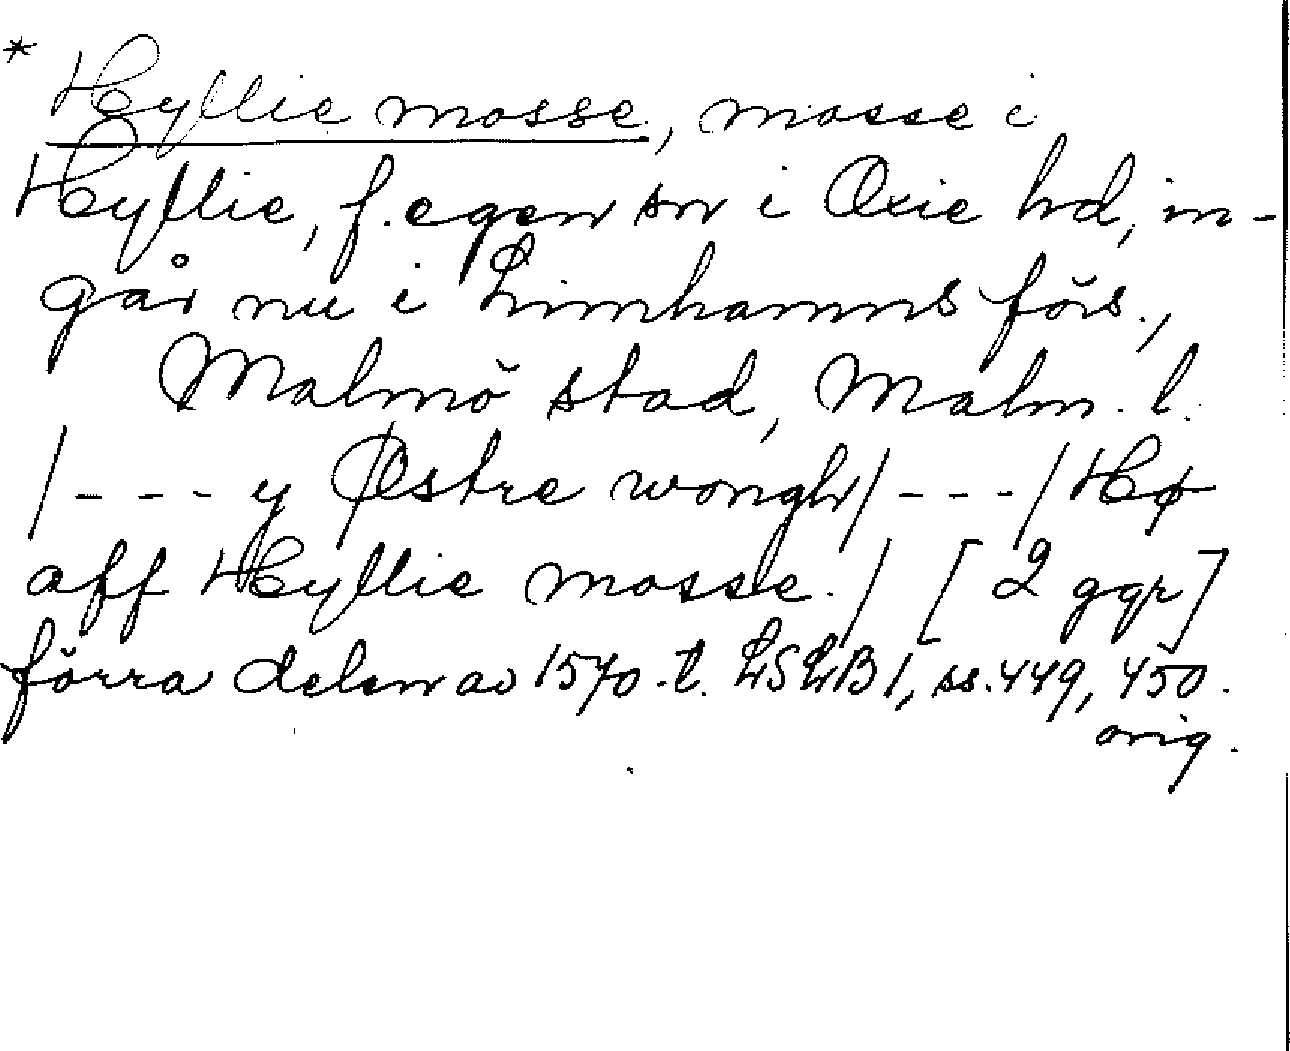 * Hyllie mosse, mosse i
Hyllie, f. egen sn i Oxie hd, in-
går nu i Limhamns förs.,
Malmö stad, Malm. l.
/--- y Østre wongh/---/Hø
aff Hyllie mosse./ [2 ggr]
förra delen av 1570-t. LSLB 1, ss. 449, 450.
orig.